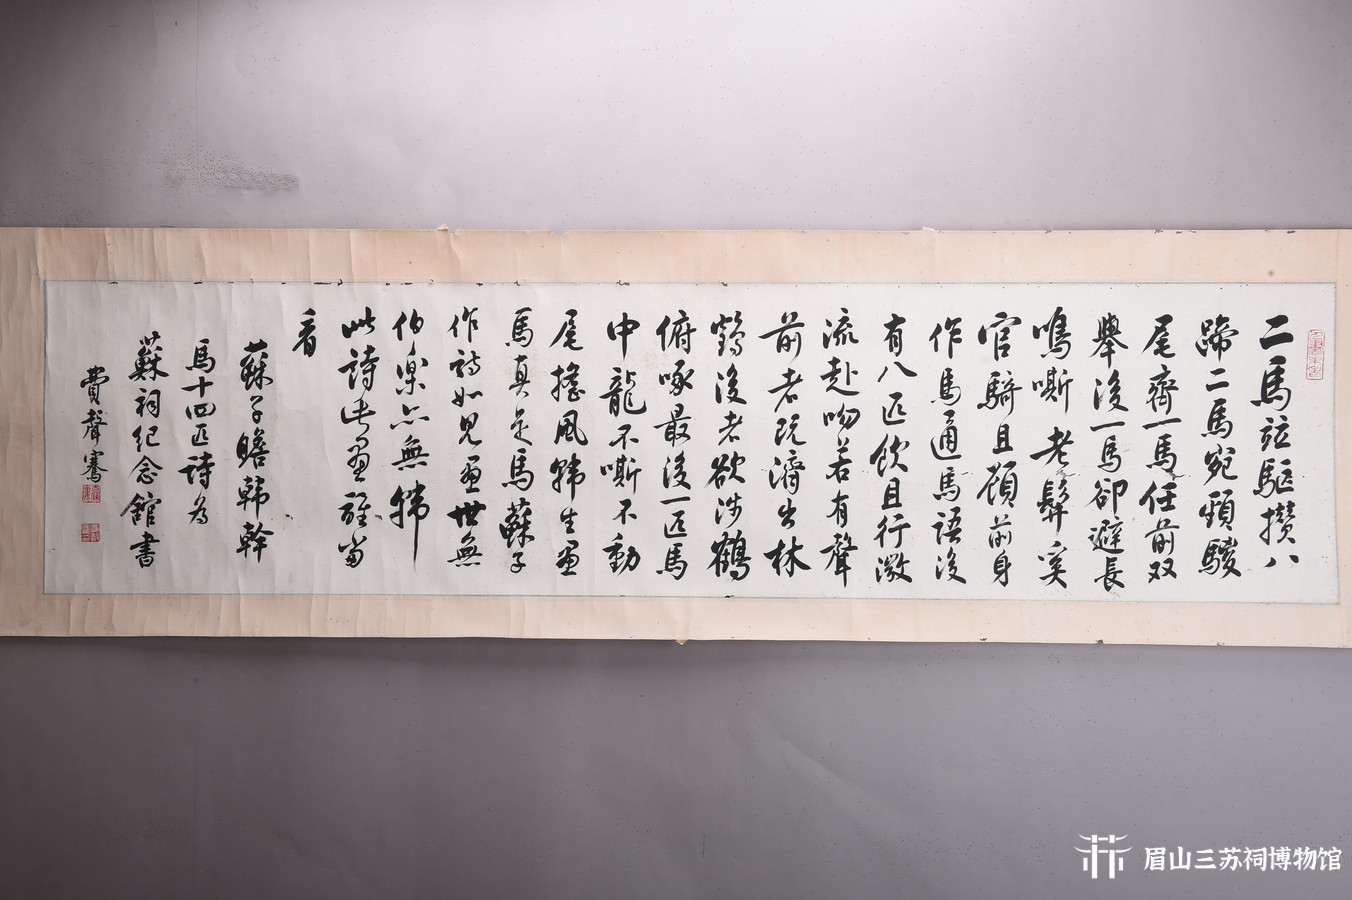 二馬竝驅攢八
蹄二馬宛頸騣
尾齊一馬任前双
舉後一馬卻避長
鳴嘶老髯奚
官騎且顧前身
作馬通馬語後
有八匹飲且行微
流赴吻若有聲
前者既濟出林
鶴後者欲涉鶴
俯啄最後一匹馬
中龍不嘶不動
尾搖風韩生畫
馬真是馬蘇子
作詩如見畫世無
伯樂亦無韩
此詩此畫誰當
看
蘇子瞻韩幹
馬十四匹詩為
蘇祠紀念館書
費聲騫
眉山三苏祠博物馆